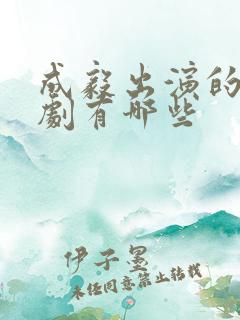 成毅出演的
劇有哪些
伊子墨
未经同意禁止转载